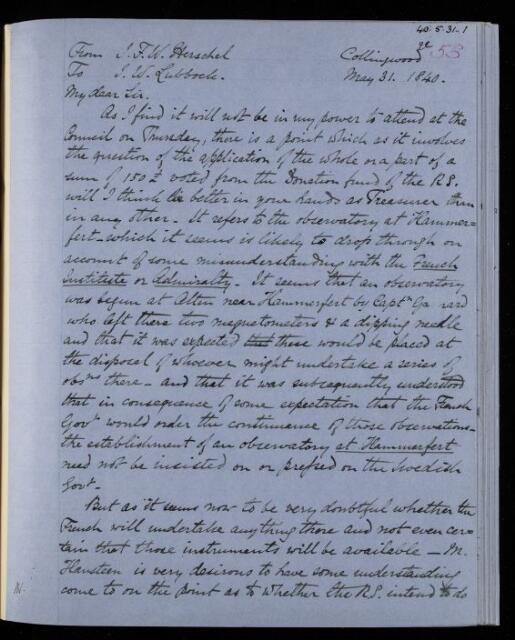 40.5.31.1
From J. F. W. Herschel
Collingwood
53
To J. W. Lubbock.
May 31. 1840.
My dear Sir.
As I find it will not be in my power to attend at the
Council on Thursday, there is a point which as it involves
the question of the application of the whole or a part of a
sum of 150£ voted from the Donation fund of the R.S.
will I think be better in your hands as Treasurer than
in any other. It refers to the observatory at Hammer=
fert which it seems is likely to drop through on
account of some misunderstanding with the French
Institute or Admiralty. It seems that an observatory
was begun at Alten near Hammerfert by Captn Ga rard
who left there two magnetometers & a dipping needle
and that it was expected that these would be placed at
the disposal of whoever might undertake a series of
obsns there - and that it was subsequently understood
that in consequence of some expectation that the French
Govt would order the continuance of those observations
the establishment of an observatory at Hammerfert
need not be insisted on or pressed on the Swedish
Govt.
But as it seems now to be very doubtful whether the
French will undertake anything there and not even cer=
tain that those instruments will be available - M.
Hansteen is very desirous to have some understanding
come to on the point as to whether the R.S. intend to do